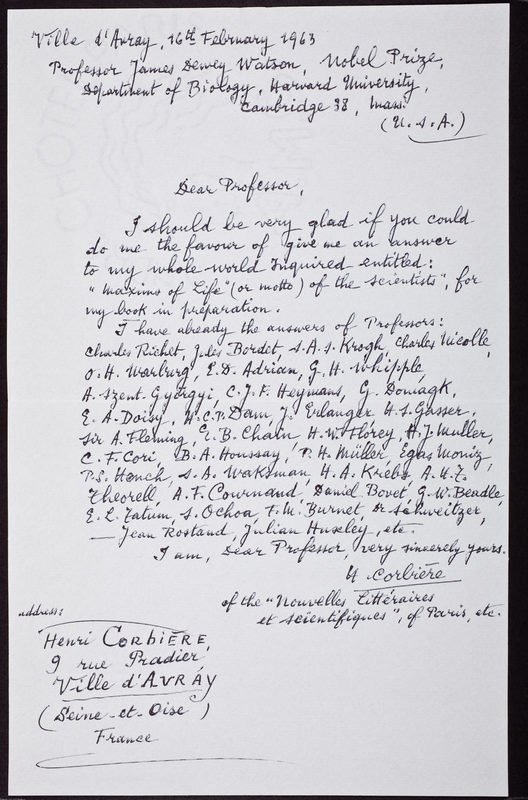 Ville d'Avray, 16th February 1963
Professor James Dewey Watson, Nobel Prize,
Department of Biology, Harvard University,
Cambridge 38, Mass.
(U.S.A.)
Dear Professor,
I should be very glad if you could
do me the favour of give me an answer
to my whole-world Inquired entitled:
"Maxims of Life" (or motto) of the scientists", for
my book in preparation.
I have already the answers of Professors:
Charles Richet, Jules Bordet, S.A.S. Krogh, Charles Nicolle,
O.H. Warburg, E.D. Adrian, G.H. Whipple,
A. Szent-Györgyi, C.J.F. Heymans, G. Domagk,
E.A. Doisy, H.C.P. Dam, J. Erlanger, H.S. Gasser,
Sir A. Fleming, E.B. Chain, H.W. Florey, H.J. Muller,
C.F. Cori, B.A. Houssay, P.H. Müller, Egas Moniz,
P.S. Hench, S.A. Waksman, H.A. Krebs, A.H.T.
Theorell, A.F. Cournand, Daniel Bovet, G.W. Beadle,
E.L. Tatum, S. Ochoa, F.M. Burnet, Dr Schweitzer,
— Jean Rostand, Julian Huxley, etc.
I am, Dear Professor, very sincerely yours.
H Corbière
of the "Nouvelles Littéraires
et scientifiques", of Paris, etc.
address:
Henri CORBIÈRE,
9 rue Pradier,
Ville d'AVRAY
(Seine-et-Oise)
France